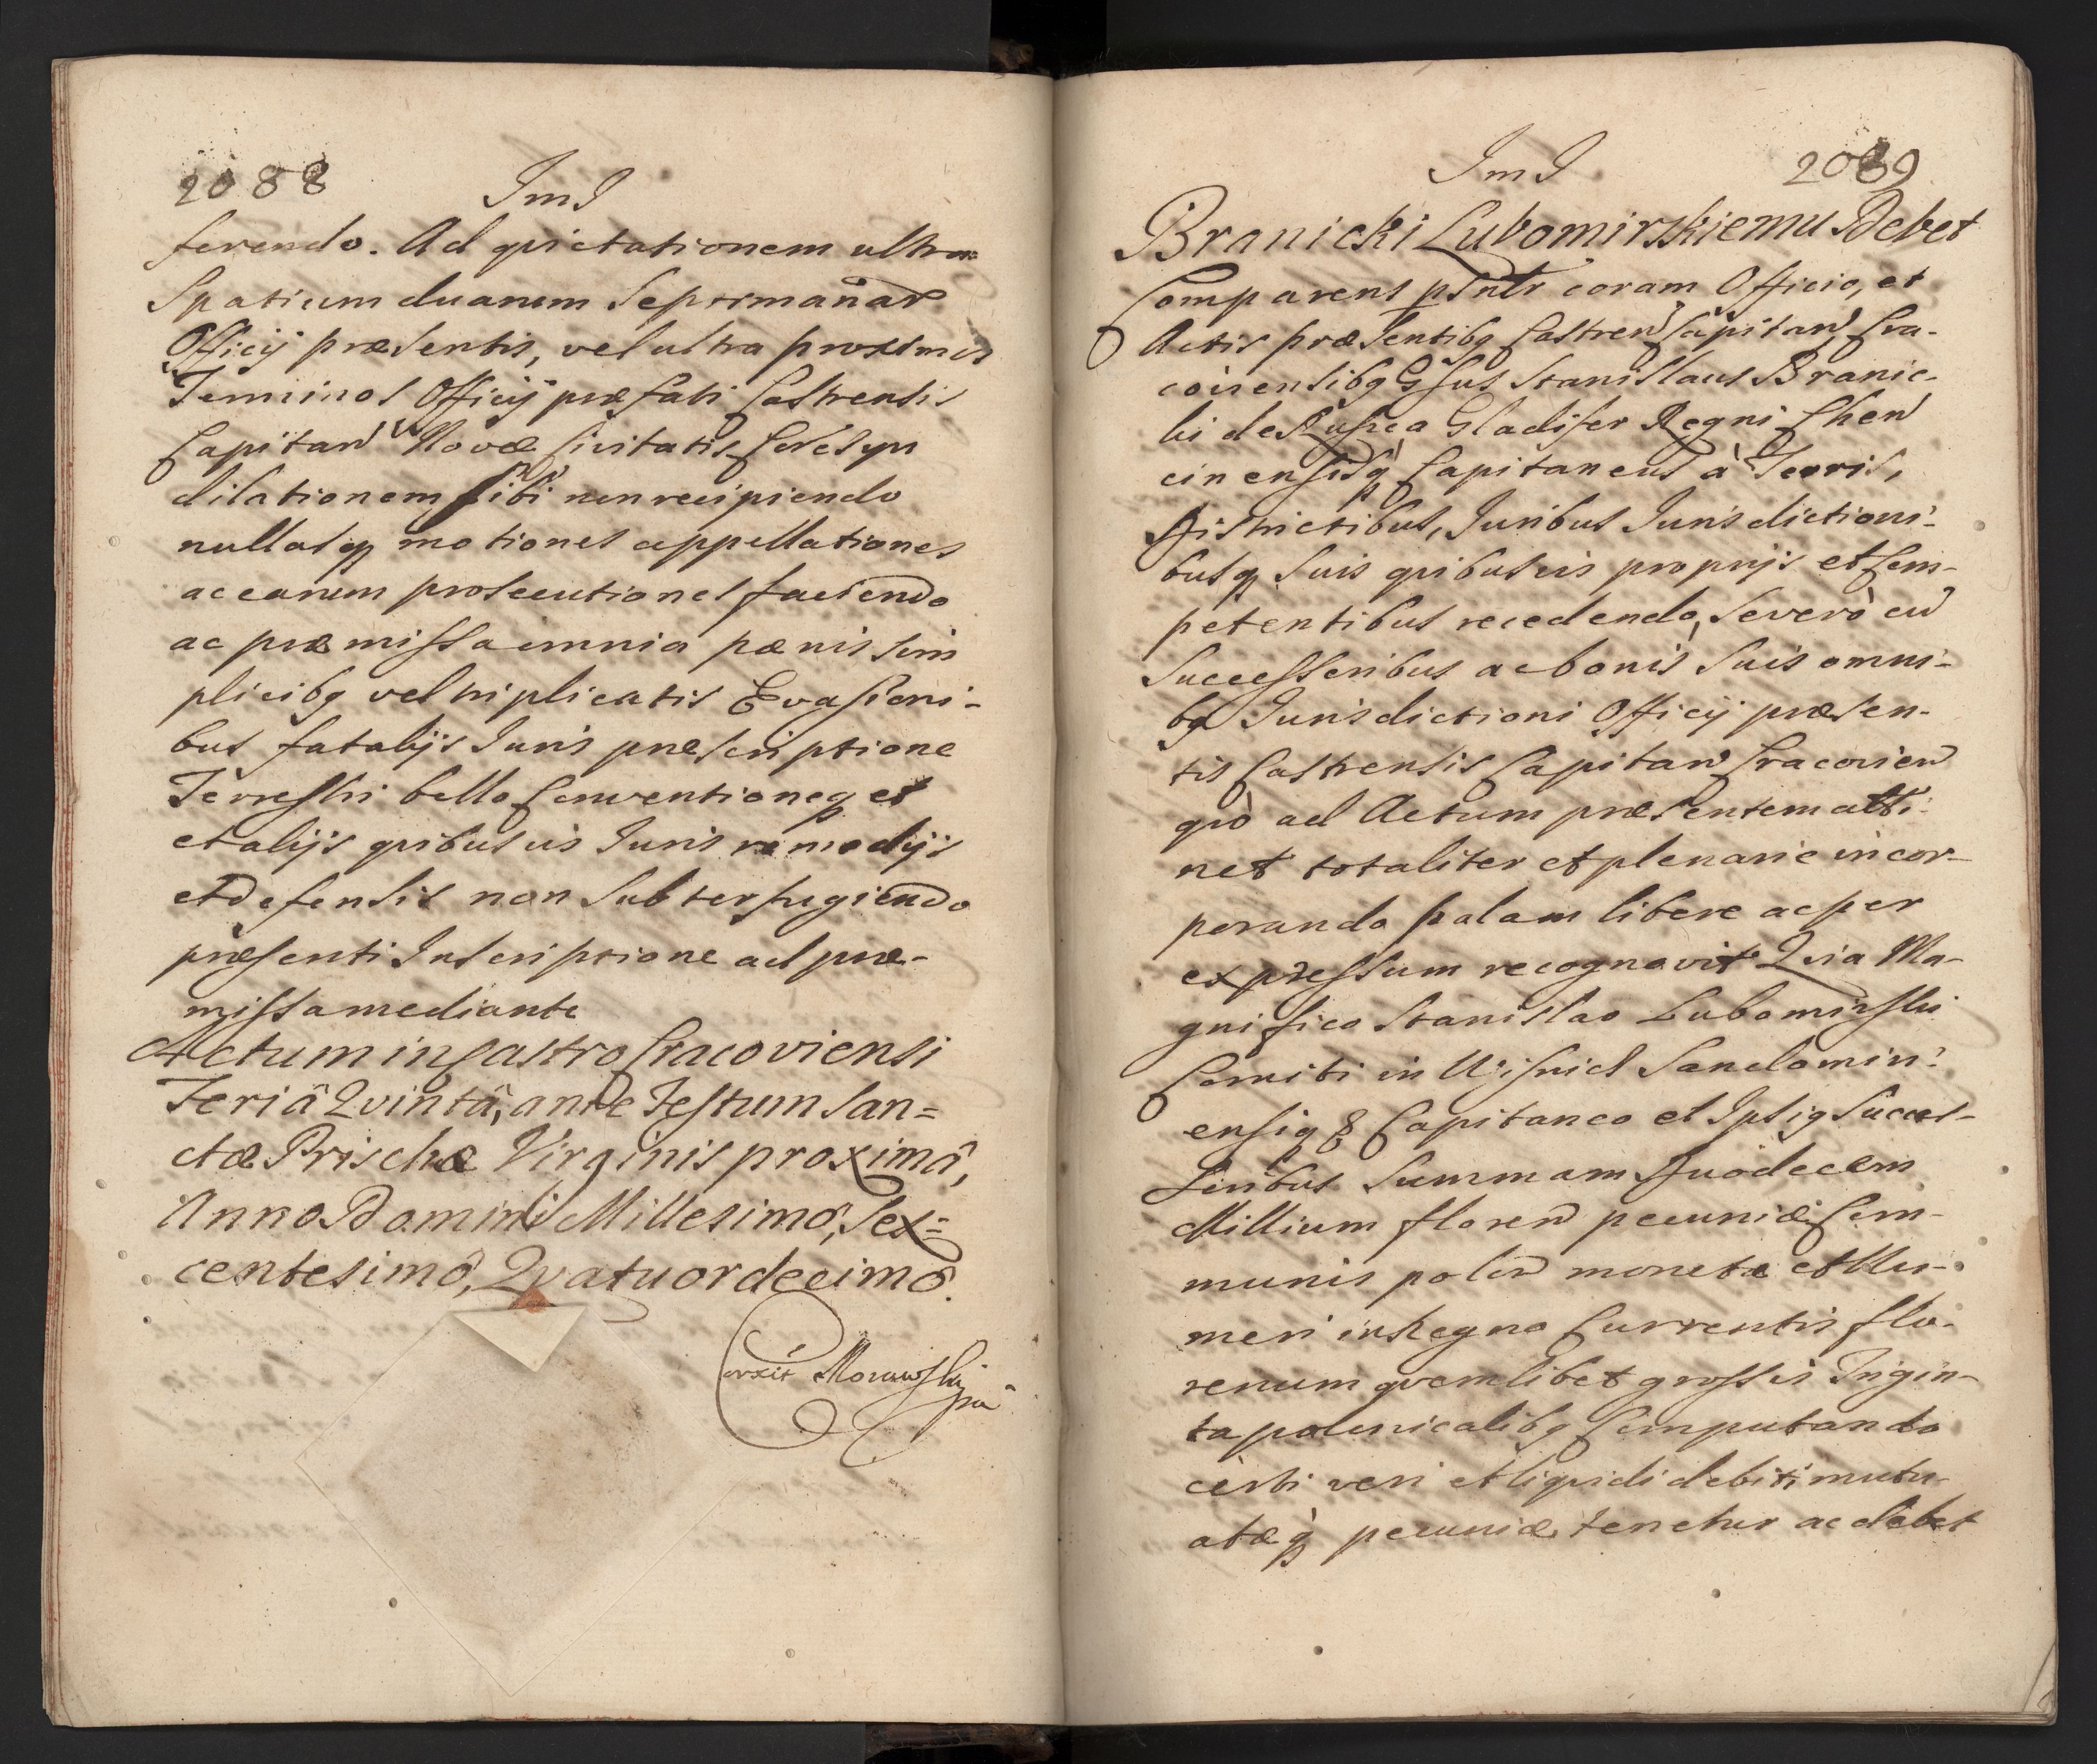 2088
ImJ
ferendo. Ad qvietationem ultra
Spatium duarum Septimanar
Officij præsentis, vel ultra proximos
Terminos Officij præfati Castrensis
Capitan Novæ Civitatis Corcsyn
dilationem sibi non recipiendo
nullasq motiones appellationes
ac earum prosecutiones faciendo
ac præmissa omnia pænis sim
plicibq vel triplicatis Evasioni-
bus fatalijs Juris præscriptione
Terrestri bello Conventioneq et
et alijs qvibusvis Juris remedijs
et defensis non subterfugiendo
præsenti Inscriptione ad præ-
missa mediante
Actum in Castro Cracoviensi
Feriâ Qvintâ, ante Festum San=
ctæ Prischæ Virginis proximâ,
Anno Domini Millesimô, Sex=
centesimô, Qvatuordecimô.
Corxit Morawski
mp
ImJ
2089
Branicki Lubomirskiemu Debet
Comparens psntr coram Officio, et
Actis præsentibq Castren Capitan, Cra-
coviensibq Gsus Stanislaus Branic-
ki de Ruscza Gladifer Regni Chen
cinensisq Capitaneus à Terris,
Districtibus, Juribus Jurisdictioni-
busq suis qvibusvis proprijs et Com-
petentibus recedendo, se verò cu
Successoribus ac bonis suis omni-
bq Jurisdictioni Officij præsen-
tis Castrensis Capitan Cracovien
qvò ad Actum præsentem atti-
net totaliter et plenarie incor-
porando palam libere ac per
expressum recognovit Qvia Ma-
gnifico Stanislao Lubomirski
Comiti in Wisnicz Sandomiri-
ensiq & Capitaneo et Ipsiq Succes-
soribus Summam Duodecem
Millium floren pecuniæ Com-
munis polon monetæ et Nu-
meri in Regno Currentis flo-
renum qvemlibet grossis Trigin-
ta polonicalibq Computando
certi veri et liqvidi debiti mutu-
atæq pecuniæ tenetur ac debet